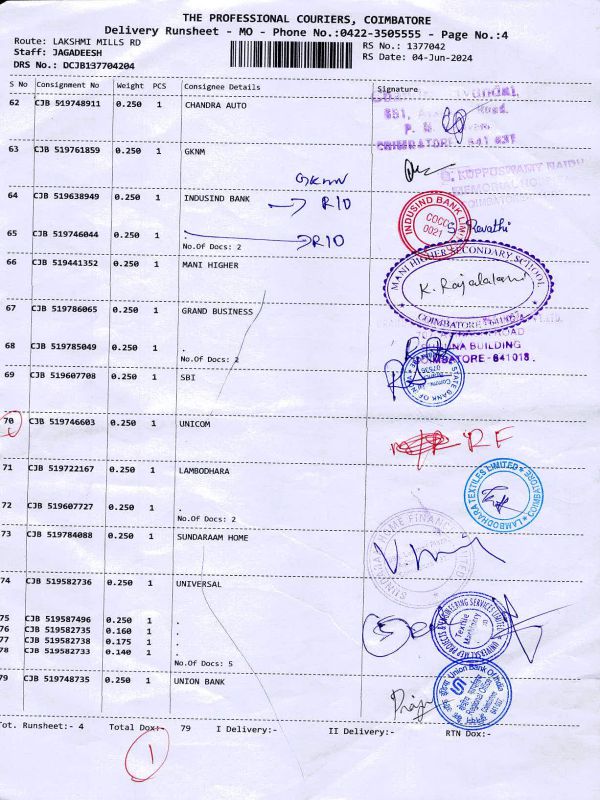 THE PROFESSIONAL COURIERS, COIMBATORE
Delivery Runsheet - MO - Phone No.:0422-3505555 - Page No.:4
Route: LAKSHMI MILLS RD
RS No.: 1377042
Staff: JAGADEESH
RS Date: 04-Jun-2024
DRS No.: DCJB137704204
S No Consignment No Weight PCS Consignee Details Signature
62 CJB 519748911 0.250 1 CHANDRA AUTO
651, Road.
COIMBATORE 641 037
63 CJB 519761859 0.250 1 GKNM
G. KUPPUSWAMY NAIDU
MEMORIAL
GKNM
64 CJB 519638949 0.250 1 INDUSIND BANK
INDUSIND BANK
0021
S. Revathi
65 CJB 519746044 0.250 1 .
No.Of Docs: 2
66 CJB 519441352 0.250 1 MANI HIGHER
MANI HIGHER SECONDARY SCHOOL
COIMBATORE
67 CJB 519786065 0.250 1 GRAND BUSINESS
ROAD
BUILDING
COIMBATORE-641018.
68 CJB 519785049 0.250 1 .
No.Of Docs: 2
69 CJB 519607708 0.250 1 SBI
STATE BANK OF
70 CJB 519746603 0.250 1 UNICOM
RF
71 CJB 519722167 0.250 1 LAMBODHARA
LAMBODHARA TEXTILES LIMITED
COIMBATORE
72 CJB 519607727 0.250 1 .
No.Of Docs: 2
73 CJB 519784088 0.250 1 SUNDARAAM HOME
HOME FINANCE
74 CJB 519582736 0.250 1 UNIVERSAL
ENGINEERING SERVICES LIMITED
Textile
75 CJB 519587496 0.250 1 .
76 CJB 519582735 0.160 1 .
77 CJB 519582738 0.175 1 .
78 CJB 519582733 0.140 1 .
No.Of Docs: 5
79 CJB 519748735 0.250 1 UNION BANK
Union Bank Of India
Regional Office
Tot. Runsheet:- 4 Total Dox:- 79 I Delivery:- II Delivery:- RTN Dox:-
1